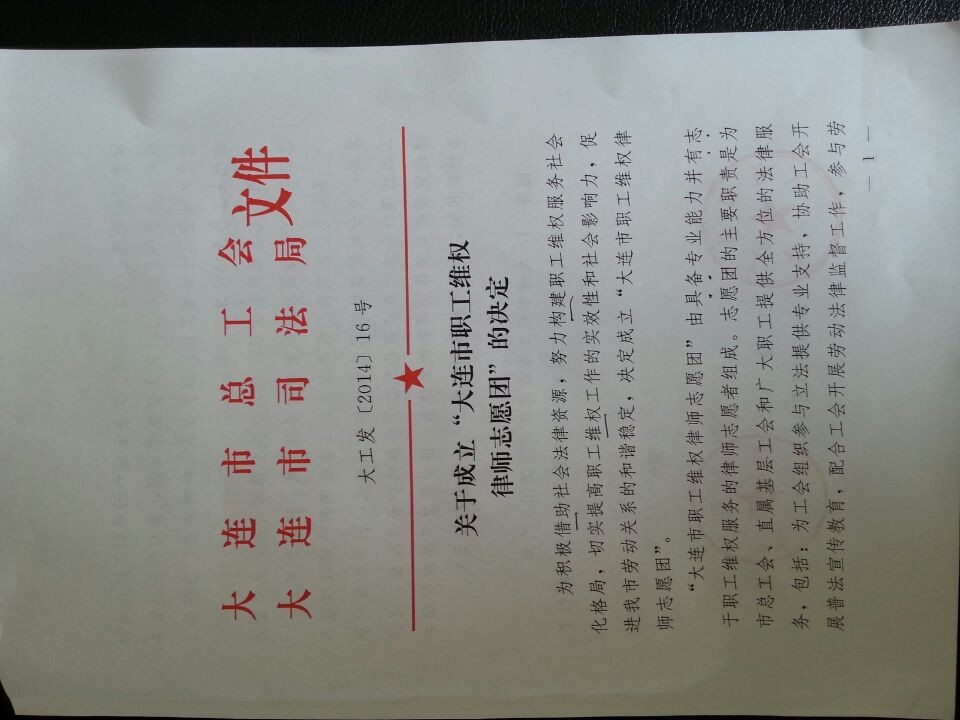 大连市总工会
大连市司法局
文件
大工发〔2014〕16号
关于成立“大连市职工维权
律师志愿团”的决定
为积极借助社会法律资源，努力构建职工维权服务社会
化格局，切实提高职工维权工作的实效性和社会影响力，促
进我市劳动关系的和谐稳定，决定成立“大连市职工维权律
师志愿团”。
“大连市职工维权律师志愿团”由具备专业能力并有志
于职工维权服务的律师志愿者组成。志愿团的主要职责是为
市总工会、直属基层工会和广大职工提供全方位的法律服
务，包括：为工会组织参与立法提供专业支持，协助工会开
展普法宣传教育，配合工会开展劳动法律监督工作，参与劳
— 1 —